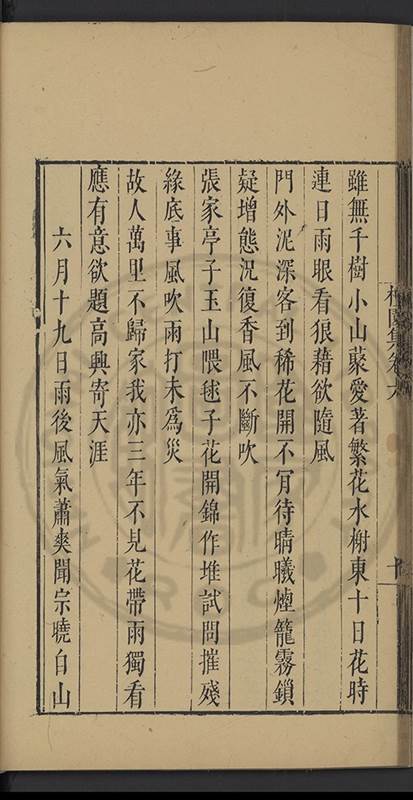 雖無千樹小山藂愛著繁花水榭東十日花時
連日雨眼看狼藉欲隨風
門外泥深客到稀花開不肎待晴曦煙籠霧鎖
疑增態況復香風不斷吹
張家亭子玉山隈毬子花開錦作堆試問摧殘
緣底事風吹雨打未爲災
故人萬里不歸家我亦三年不見花帶雨獨看
應有意欲題高興寄天涯
六月十九日雨後風氣蕭爽聞宗曉白山